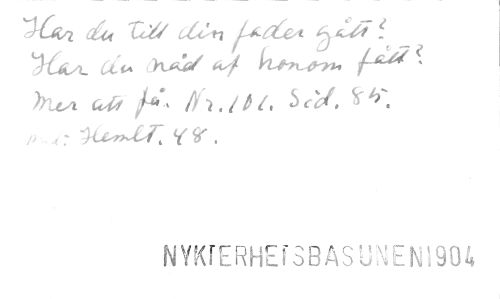 Har du till din fader gått?
Har du nåd af honom fått?
Mer att få. Nr. 101. Sid. 85.
Hemlt. 48.
NYKTERHETSBASUNEN1904